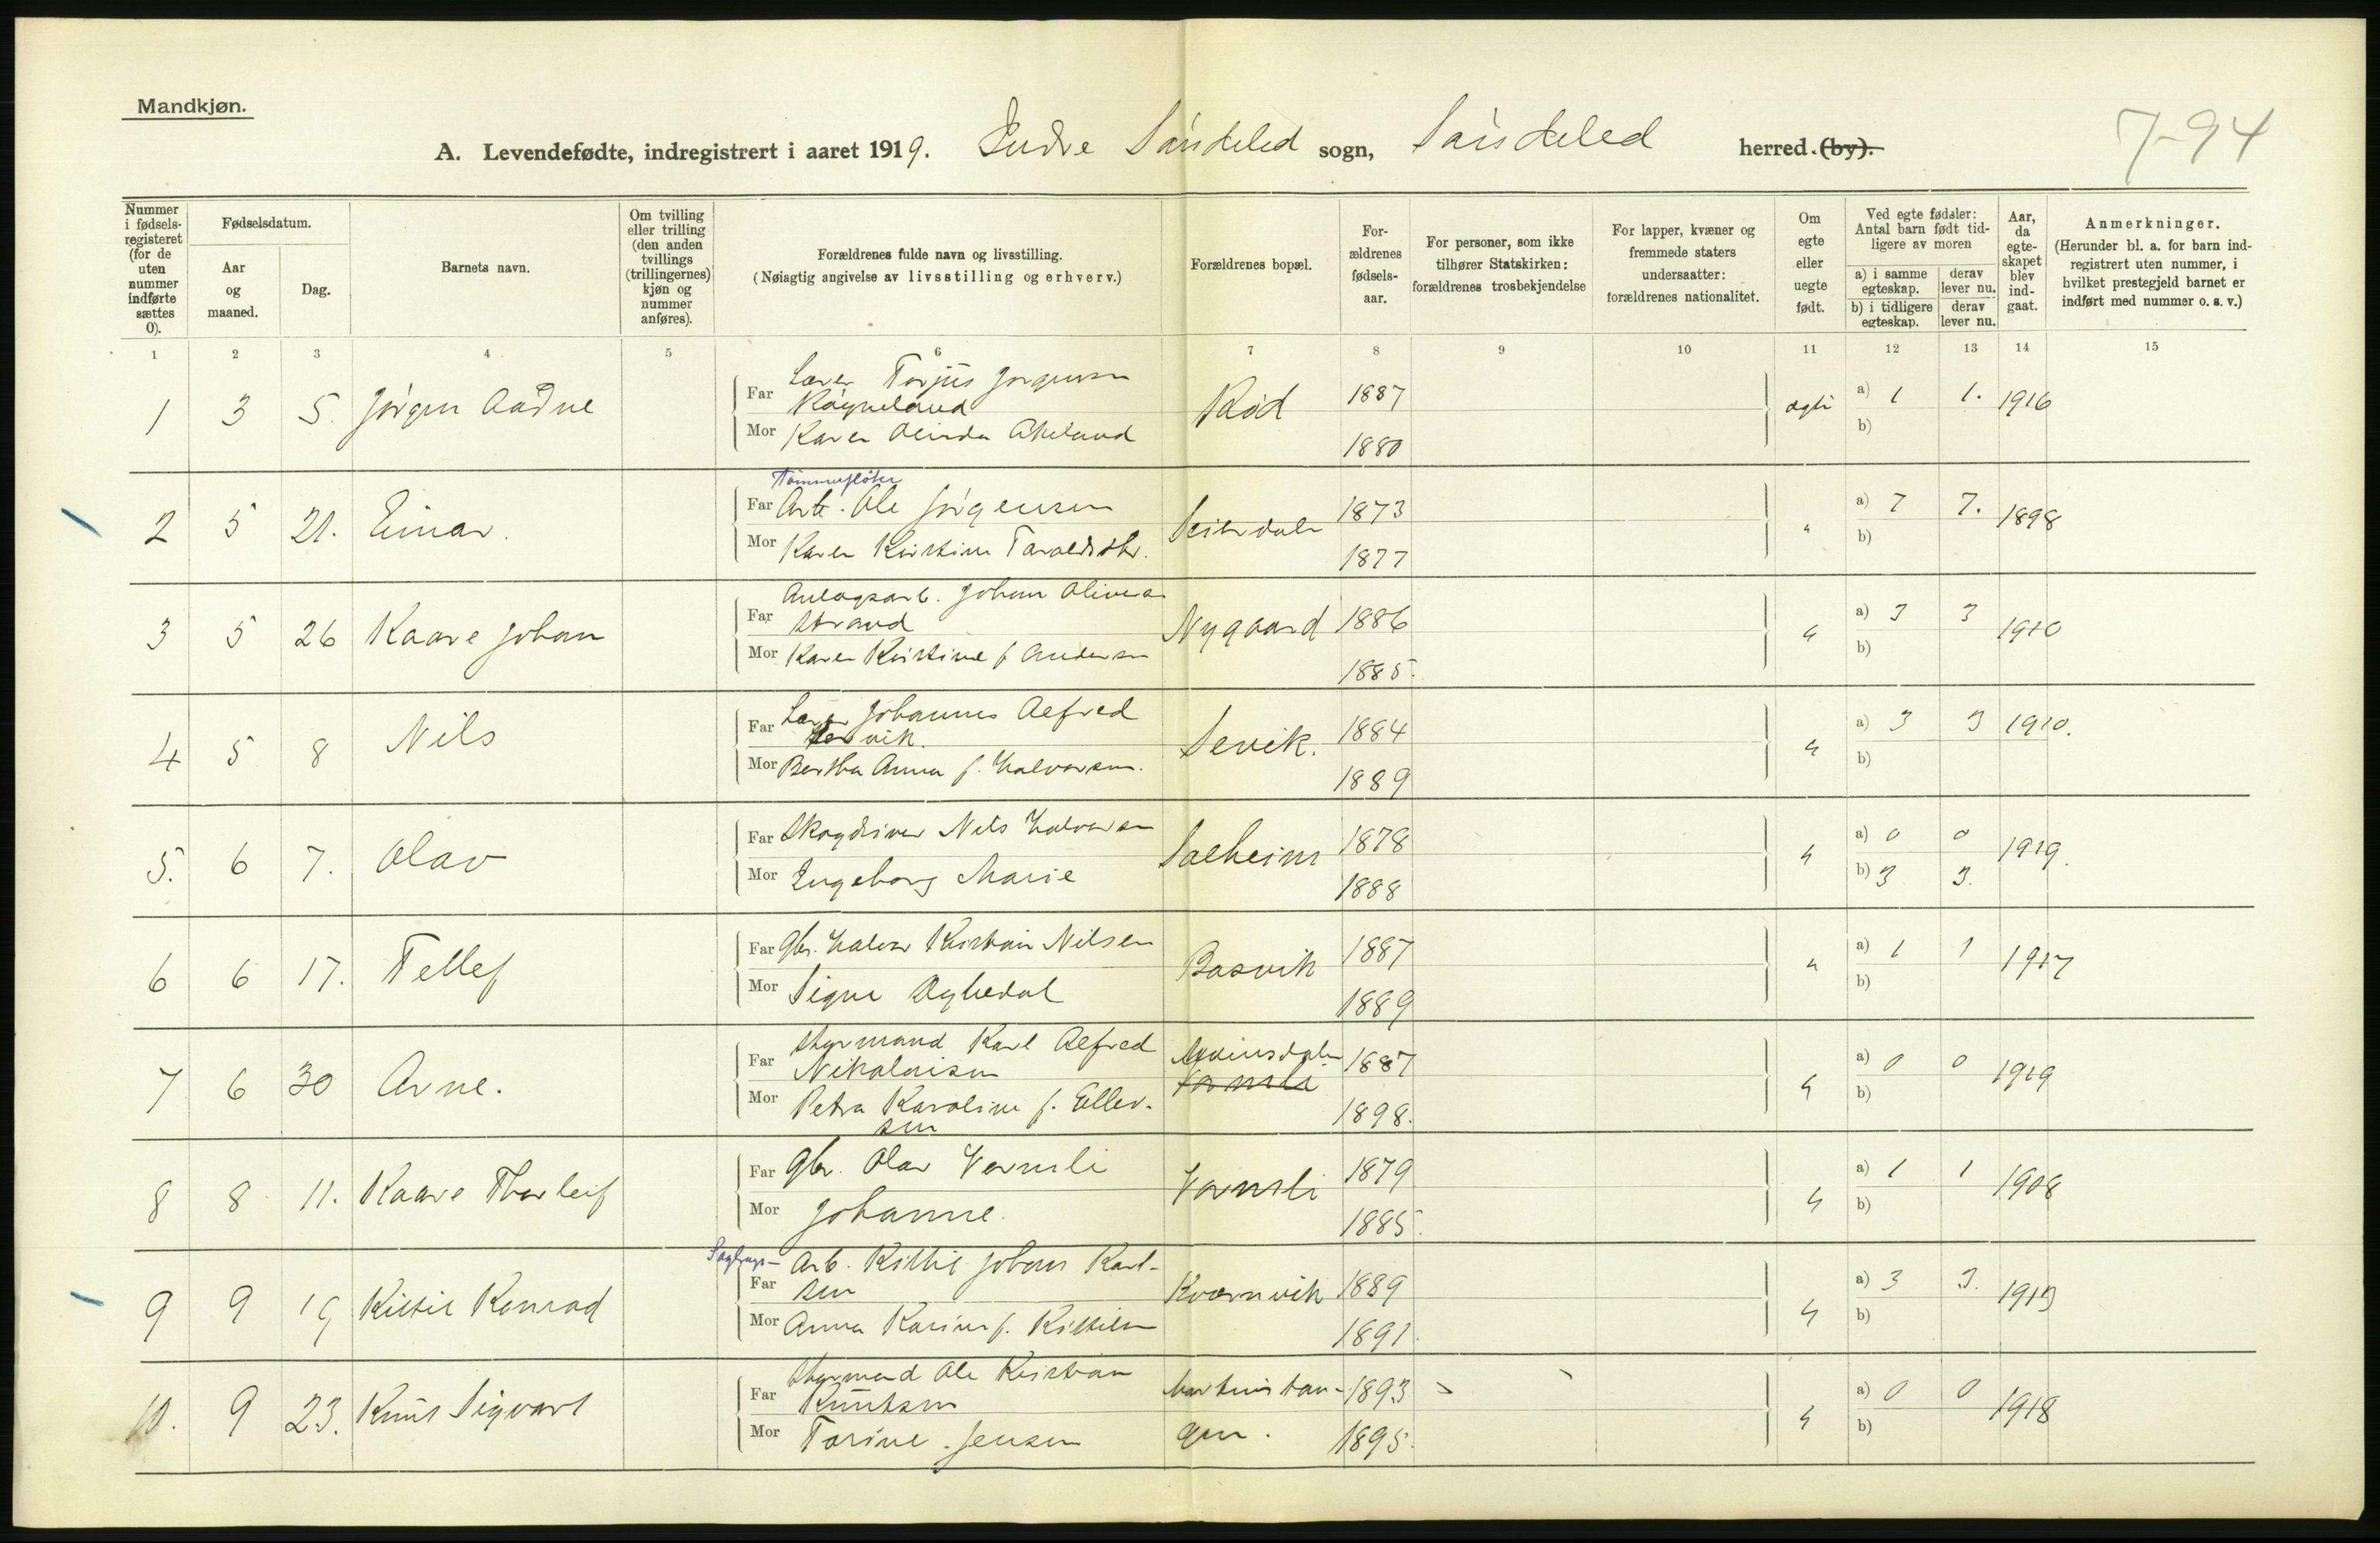 Mandkjøn.
A. Levendefødte, indregistrert i aaret 1919. Indre Søndeled sogn, Søndeled herred (by).
7-94
Nummer i fødselsregisteret (for de uten nummer indførte sættes 0).
Fødselsdatum.
Aar og maaned.
Dag.
Barnets navn.
Om tvilling eller trilling (den anden tvillings (trillingernes) kjøn og nummer anføres).
Forældrenes fulde navn og livsstilling.
(Nøiagtig angivelse av livsstilling og erhverv.)
Forældrenes bopæl.
Forældrenes fødselsaar.
For personer, som ikke tilhører Statskirken: forældrenes trosbekjendelse
For lapper, kvæner og fremmede staters undersaatter: forældrenes nationalitet.
Om egte eller uegte født.
Ved egte fødsler: Antal barn født tidligere av moren
a) i samme egteskap.
derav lever nu.
b) i tidligere egteskap.
derav lever nu.
Aar, da egteskapet blev indgaat.
Anmerkninger.
(Herunder bl. a. for barn indregistrert uten nummer, i hvilket prestegjeld barnet er indført med nummer o. s. v.)
1 2 3 4 5 6 7 8 9 10 11 12 13 14 15
1 3 5. Jørgen Aadne
Far Lærer Torjus Jørgensen
Røgneland
Mor Karen Olinda Akeland
Rød 1887
1880
ægte a) 1 1. 1916
b)
2 5 21. Einar.
Tømmerfløter
Far Arb. Ole Jørgensen
Mor Karen Kirstine Taraldsdtr.
Seierdalen 1873
1877
" a) 7 7. 1898
b)
3 5 26 Kaare Johan
Anlægsarb. Johan Olivera
Far Strand
Mor Karen Kirstine f. Andersen
Nygaard 1886
1885.
" a) 3 3 1910
b)
4 5 8 Nils
Lærer Johannes Alfred
Far Sevik.
Mor Bertha Anna f. Halvorsen.
Sevik. 1884
1889
" a) 3 3 1910.
b)
5. 6 7. Olav
Far Skogdriver Nils Halvorsen
Mor Ingeborg Marie
Solheim 1878
1888
" a) 0 0 1919.
b) 3 3.
6 6 17. Tellef
Far Gbr. Halvor Kristian Nilsen
Mor Signe
Bosvik 1887
1889
" a) 1 1 1917
b)
7 6 30 Arne.
Styrmand Karl Alfred
Far Nikolaisen
Mor Petra Karoline f. Ellev-
sen
Vormli 1887
1898.
" a) 0 0 1919
b)
8 8 11. Kaare Thorleif
Far Gbr. Olav Vormli
Mor Johanne.
Vormli 1879
1885.
" a) 1 1 1908
b)
9 9 19 Kittil Konrad
Sagbrugs-
Arb. Kittil Johan Karl-
Far sen
Mor Anna Karine f. Kittilsen
Kvernvik 1889
1891.
" a) 3 3. 1913
b)
10. 9 23. Knut Sigvart
Styrmand Ole Kristian
Far Knutsen
Mor Torine Jensen
1893
1895.
" a) 0 0 1918
b)